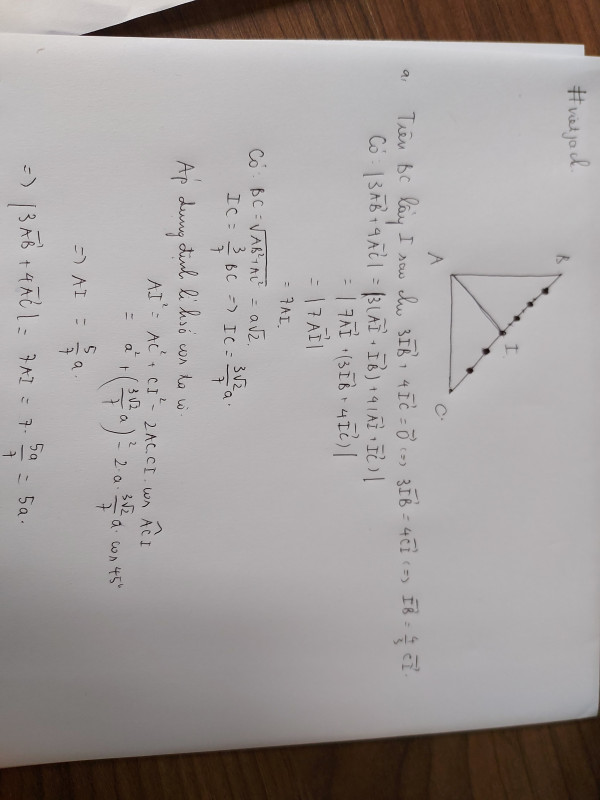 B
A
I
C.
a, Trên BC lấy I sao cho 3IB⃗ + 4IC⃗ = 0⃗ (=) 3IB⃗ = 4CI⃗ (=) IB⃗ = 4/3 CI⃗.
Có: |3AB⃗ + 4AC⃗| = |3(AI⃗ + IB⃗) + 4(AI⃗ + IC⃗)|
= |7AI⃗ + (3IB⃗ + 4IC⃗)|
= |7AI⃗|
= 7AI.
Có: BC = √(AB² + AC²) = a√2.
IC = 3/7 BC => IC = 3√2/7 a.
Áp dụng định lí
AI² = AC² + CI² - 2AC.CI.cos ACI
= a² + (3√2/7 a)² - 2.a.3√2/7 a. cos 45°
=> AI = 5/7 a.
=> |3AB⃗ + 4AC⃗| = 7AI = 7. 5a/7 = 5a.